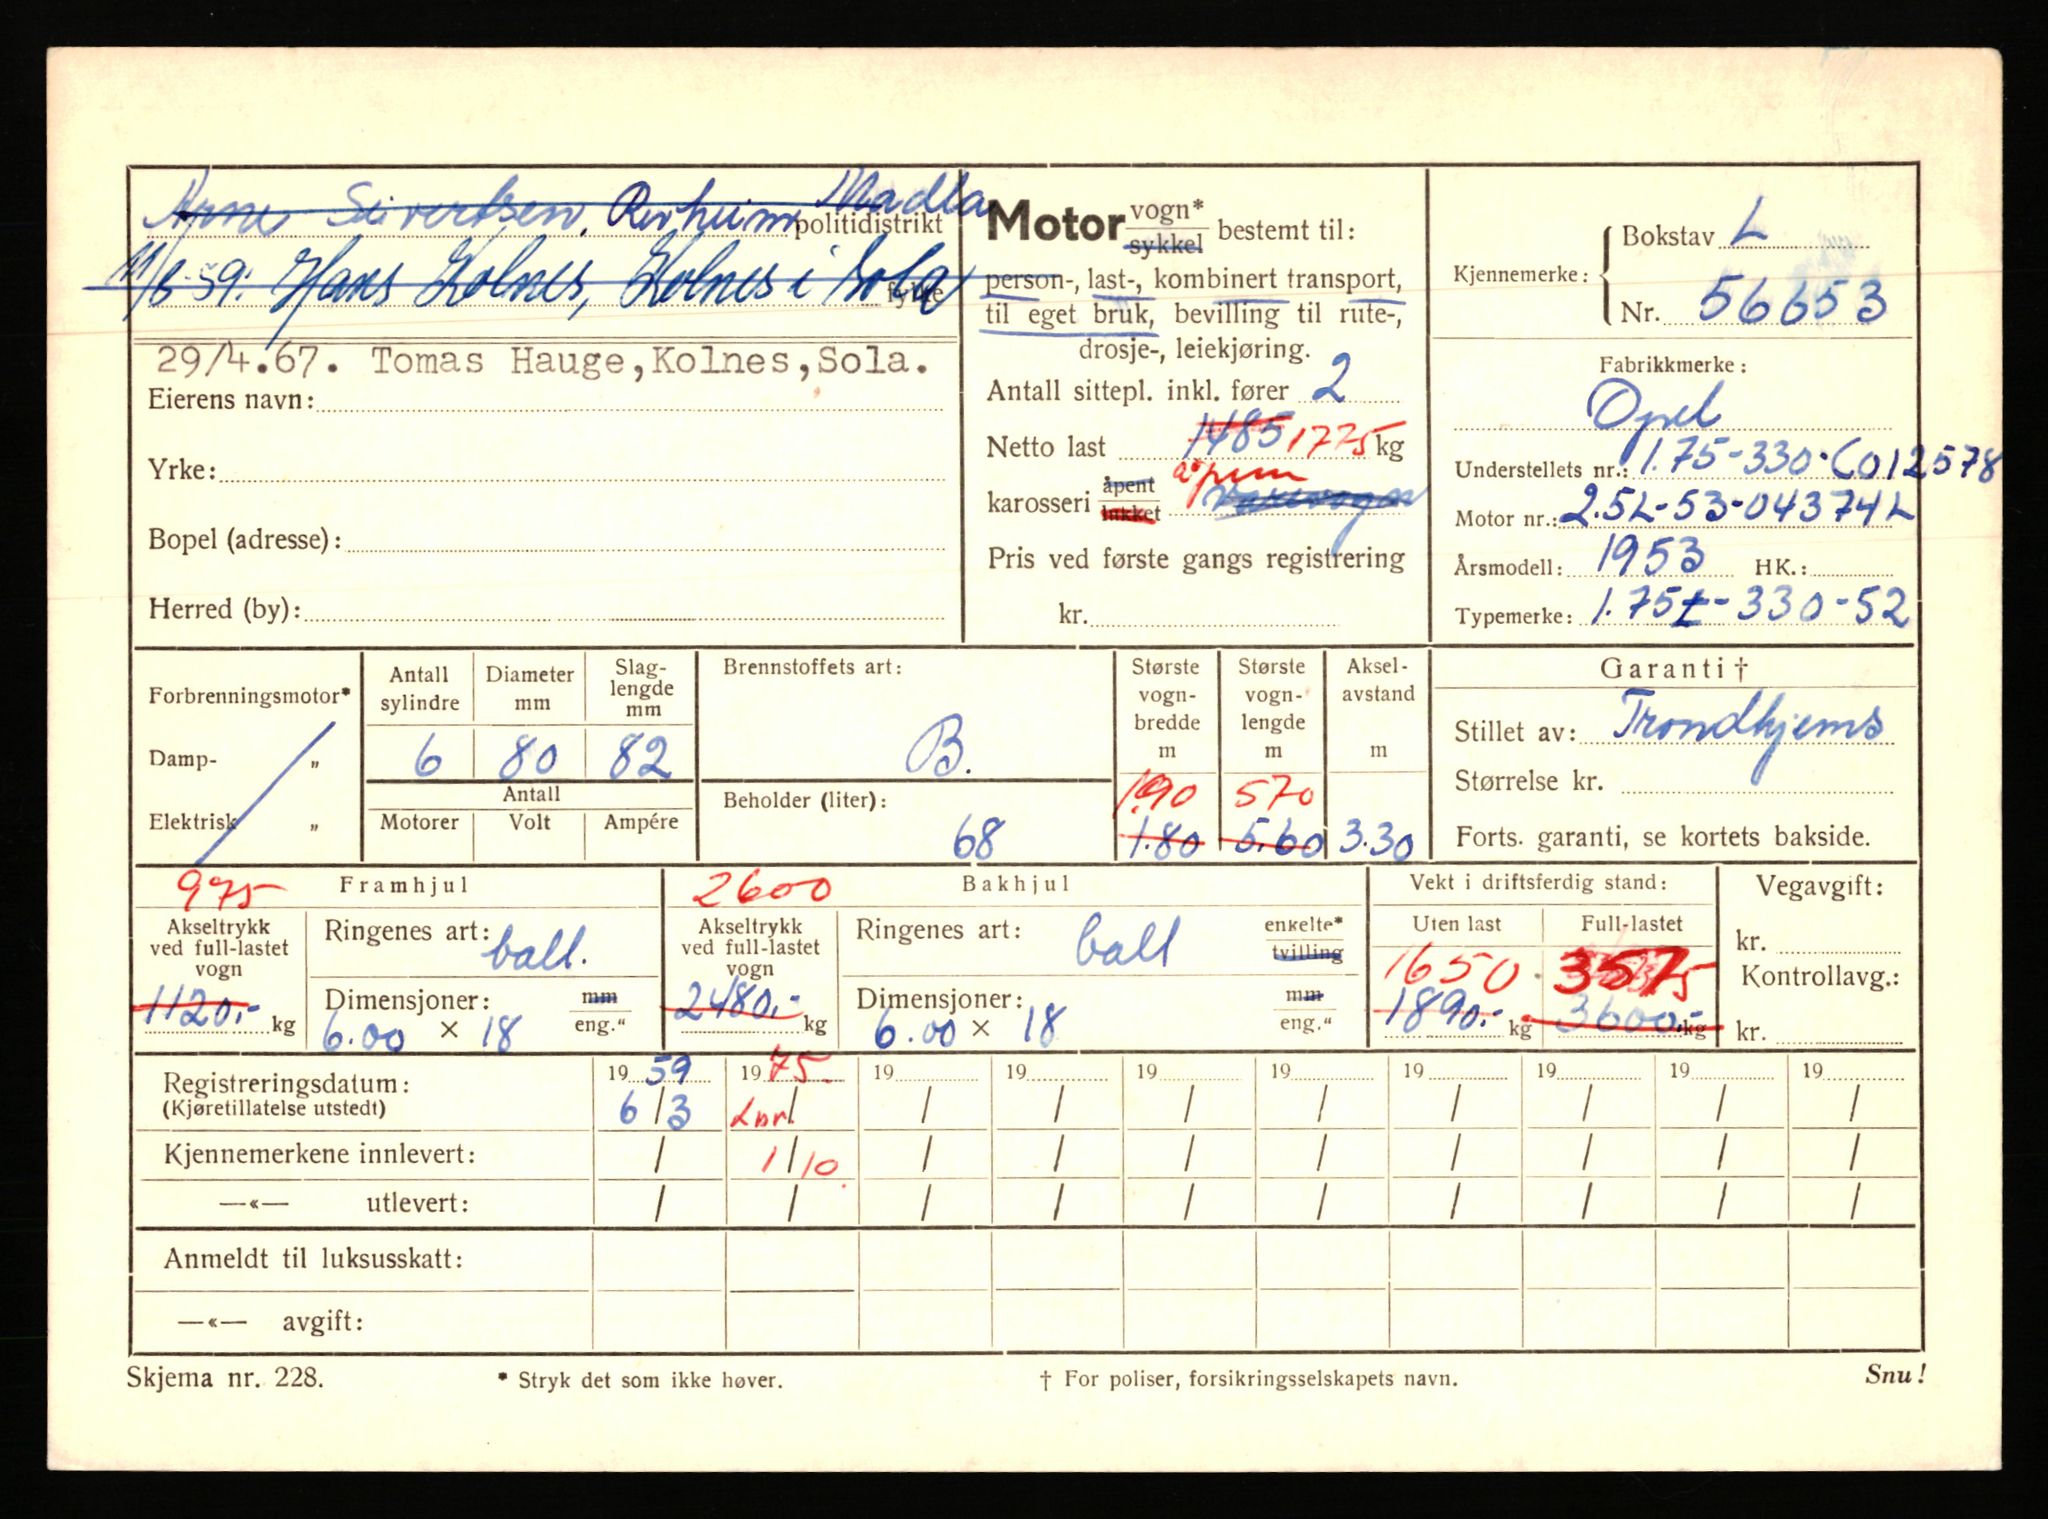 Arne Sivertsen, Revheim Madla
politidistrikt
11/6-59: Hans Kolnes, Kolnes i Sola
fylke
29/4.67. Tomas Hauge,Kolnes,Sola.
Eierens navn:
Yrke:
Bopel (adresse):
Herred (by):
Motor vogn* sykkel bestemt til:
person-, last-, kombinert transport,
til eget bruk, bevilling til rute-,
drosje-, leiekjøring.
Antall sittepl. inkl. fører 2
Netto last 1485 1775 kg
karosseri åpent lukket åpen varevogn
Pris ved første gangs registrering
kr.
Kjennemerke: Bokstav L
Nr. 56653
Fabrikkmerke:
Opel
Understellets nr.: 1.75-330-C012578
Motor nr.: 2.5L-53-04374L
Årsmodell: 1953 HK.:
Typemerke: 1.75t-330-52
Forbrenningsmotor*
Damp- „
Elektrisk „
Antall sylindre
Diameter mm
Slag-lengde mm
6 80 82
Antall
Motorer Volt Ampére
Brennstoffets art:
B.
Beholder (liter):
68
Største vogn-bredde m
1.90
1.80
Største vogn-lengde m
570
5.60
Aksel-avstand m
3.30
Garanti †
Stillet av: Trondhjems
Størrelse kr.
Forts. garanti, se kortets bakside.
975 Framhjul
Akseltrykk ved full-lastet vogn
1120.- kg
Ringenes art: ball.
Dimensjoner: mm eng."
6.00 × 18
2600 Bakhjul
Akseltrykk ved full-lastet vogn
2480.- kg
Ringenes art: ball enkelte* tvilling
Dimensjoner: mm eng."
6.00 × 18
Vekt i driftsferdig stand:
Uten last Full-lastet
1650 3575
1890.- kg 3600.- kg
Vegavgift:
kr.
Kontrollavg.:
kr.
Registreringsdatum: 19 59 19 75. 19 19 19 19 19 19 19 19
(Kjøretillatelse utstedt) 6/3 Lnr/ / / / / / / / /
Kjennemerkene innlevert: / 1/10. / / / / / / / /
—«— utlevert: / / / / / / / / / /
Anmeldt til luksusskatt:
—«— avgift:
Skjema nr. 228. * Stryk det som ikke høver. † For poliser, forsikringsselskapets navn. Snu!